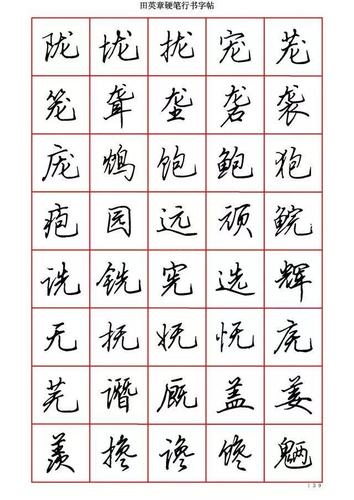 田英章硬笔行书字帖
陇 垅 拢 宠 茏
笼 聋 垄 砻 袭
庞 鸩 饱 鲍 狍
疱 园 远 顽 鲩
诜 铣 宪 选 辉
无 抚 妩 怃 庑
芜 谮 厩 盖 姜
羡 搀 谗 馋 魉
139